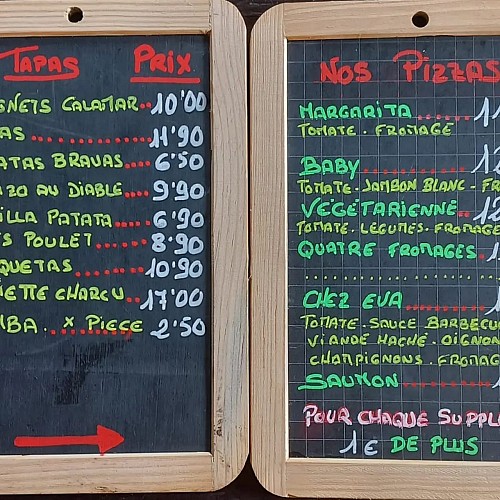 TAPAS PRIX
GNETS CALAMAR..10'00
AS..........11'90
ATAS BRAVAS...6'50
ZO AU DIABLE...9'90
ILLA PATATA....6'90
S POULET......8'90
QUETAS........10'90
ETTE CHARCU...17'00
MBA. x PIECE 2'50
NOS PIZZAS
MARGARITA.......11
TOMATE.FROMAGE
BABY.......12
TOMATE.JAMBON BLANC.FR
VEGETARIENNE..12
TOMATE.LEGUMES.FROMAGE
QUATRE FROMAGES.1
CHEZ EVA........1
TOMATE.SAUCE BARBECU
VIANDE HACHÉ.OIGNON
CHAMPIGNONS.FROMAG
SAUMON..........
POUR CHAQUE SUPPLE
1€ DE PLUS